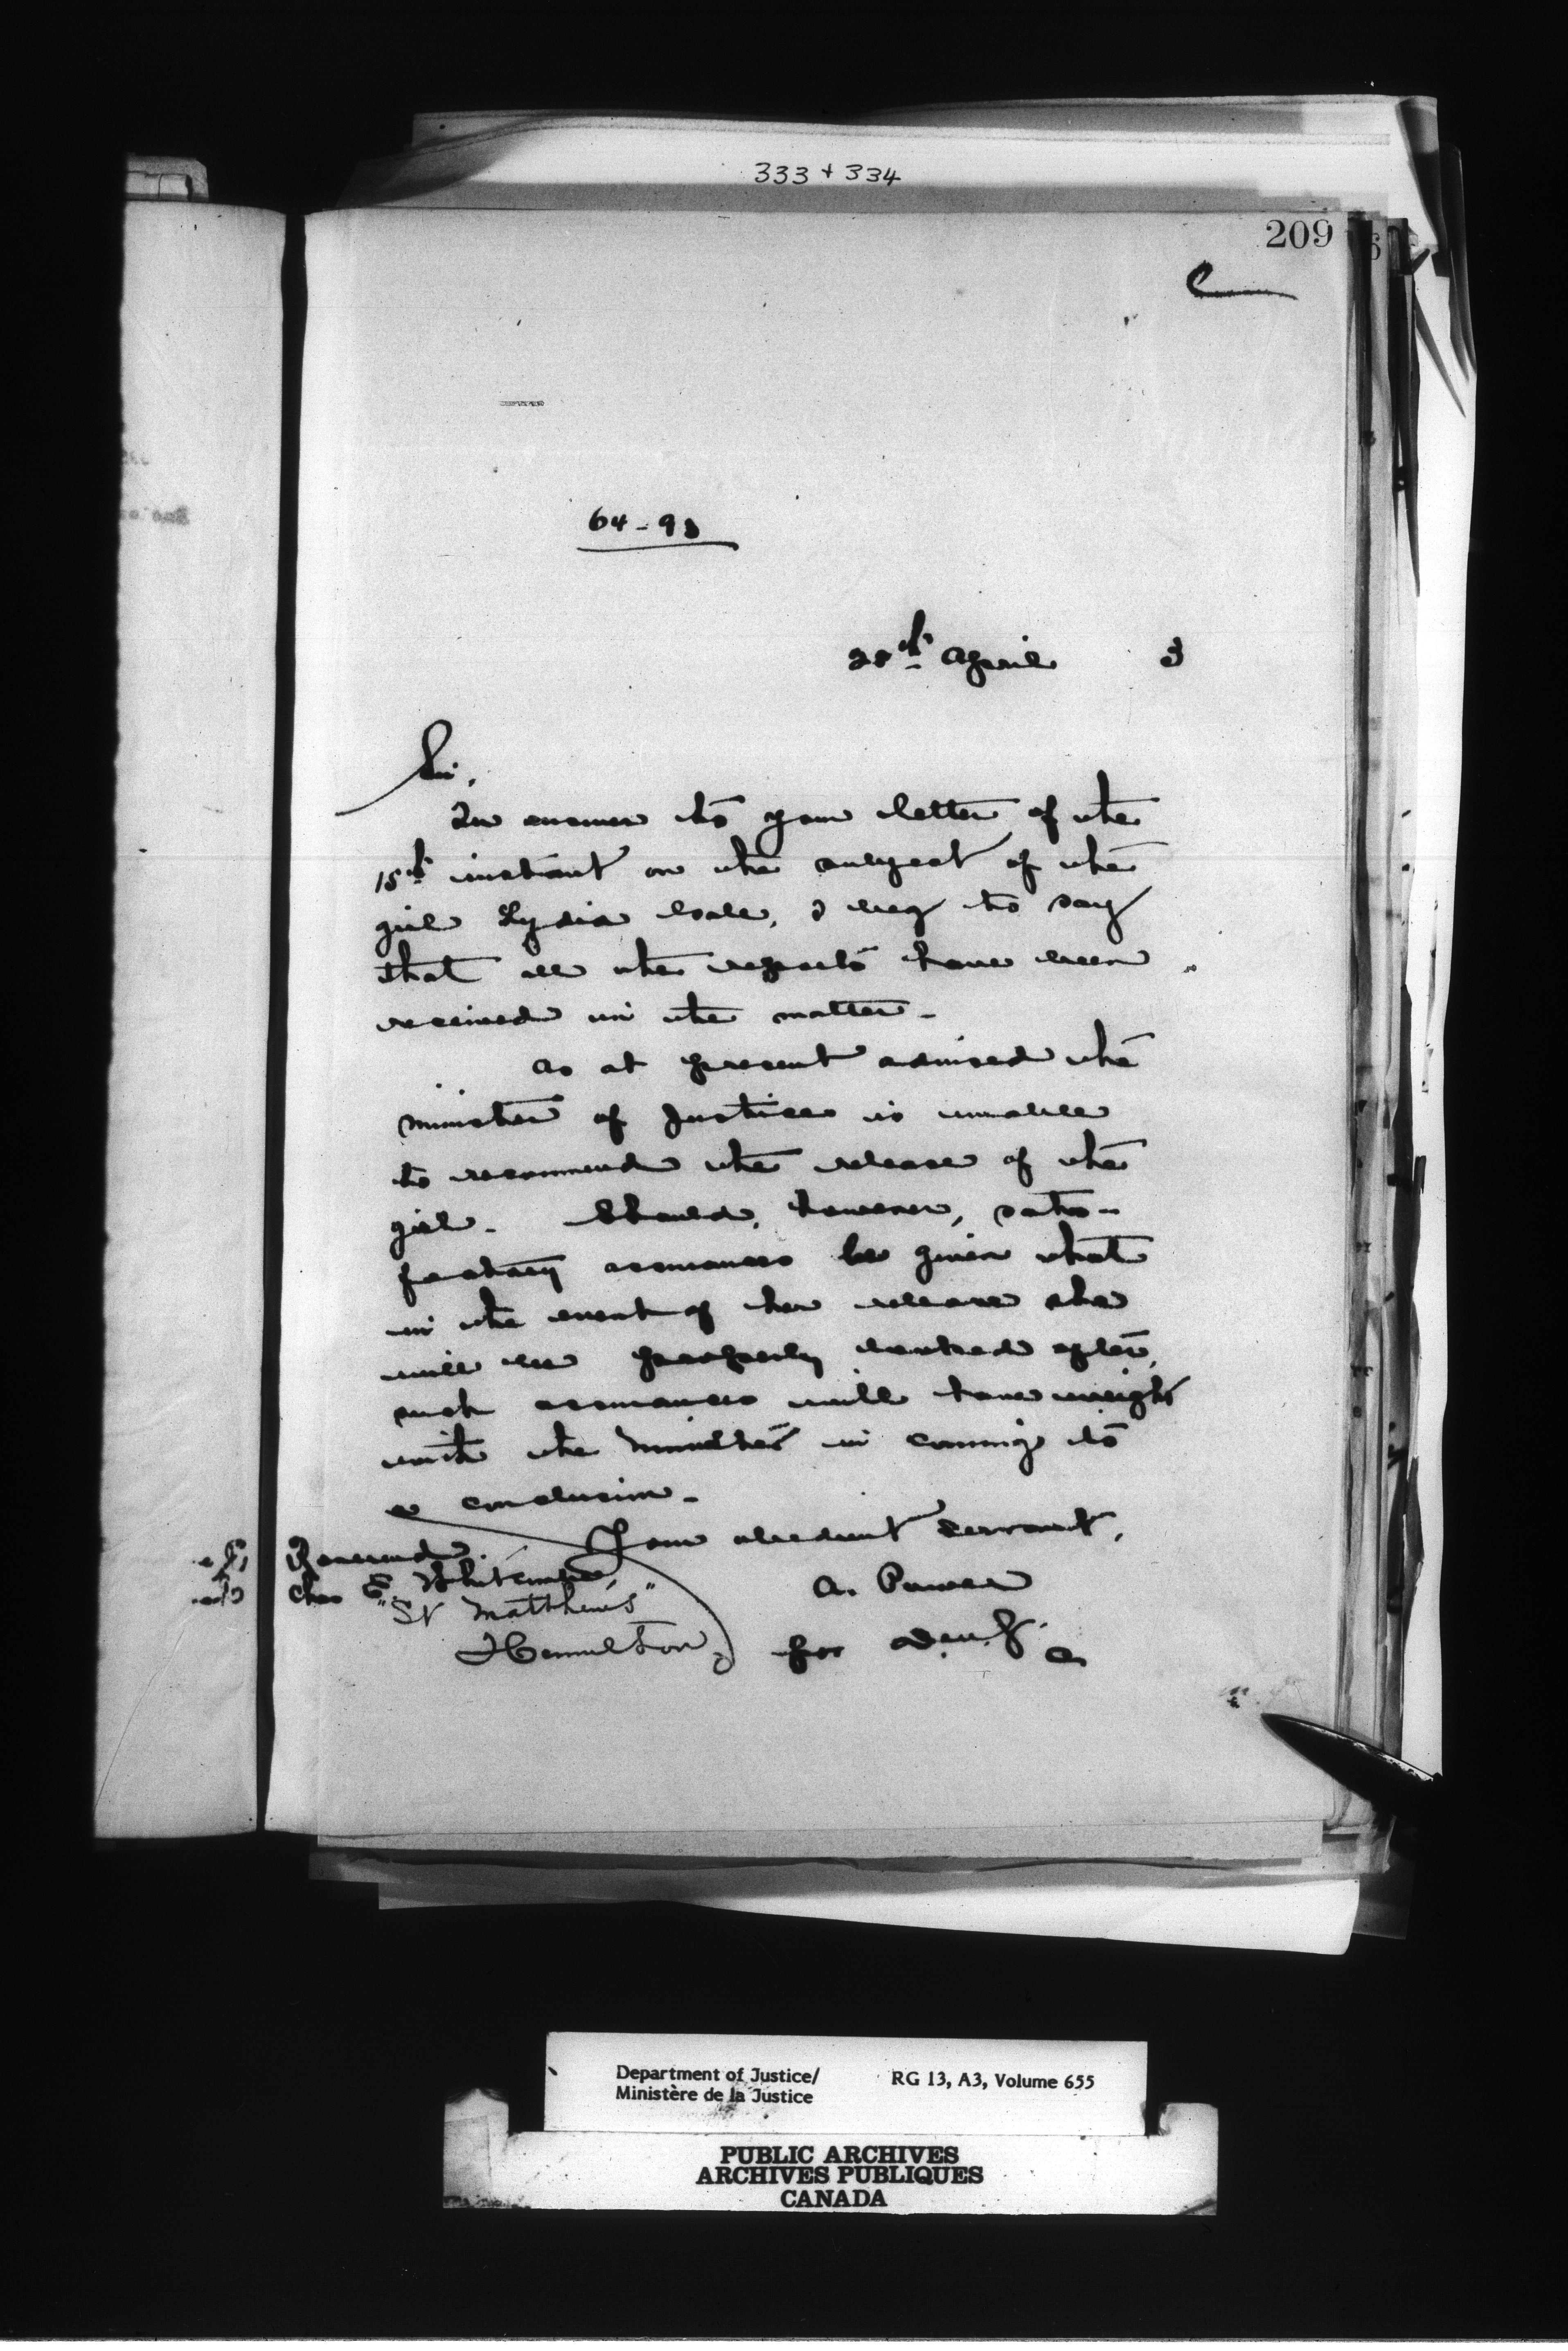 333 + 334
209
64-93
April 3
Sir,
In answer to your letter of the
15th instant on the subject of the
girl Lydia I beg to say
that all the reports have been
received in the matter -
As at present advised the
Minister of Justice is unable
to recommend the release of the
girl - Should, however, satis-
factory assurances be given that
in the event of her release she
will be properly looked after,
such assurances will have weight
with the Minister in coming to
a conclusion -
Your obedient servant,
Reverend
Chas E.
A. Power
"St Matthew's"
Hamilton
for D.M.J.
Department of Justice/ RG 13, A3, Volume 655
Ministère de la Justice
PUBLIC ARCHIVES
ARCHIVES PUBLIQUES
CANADA